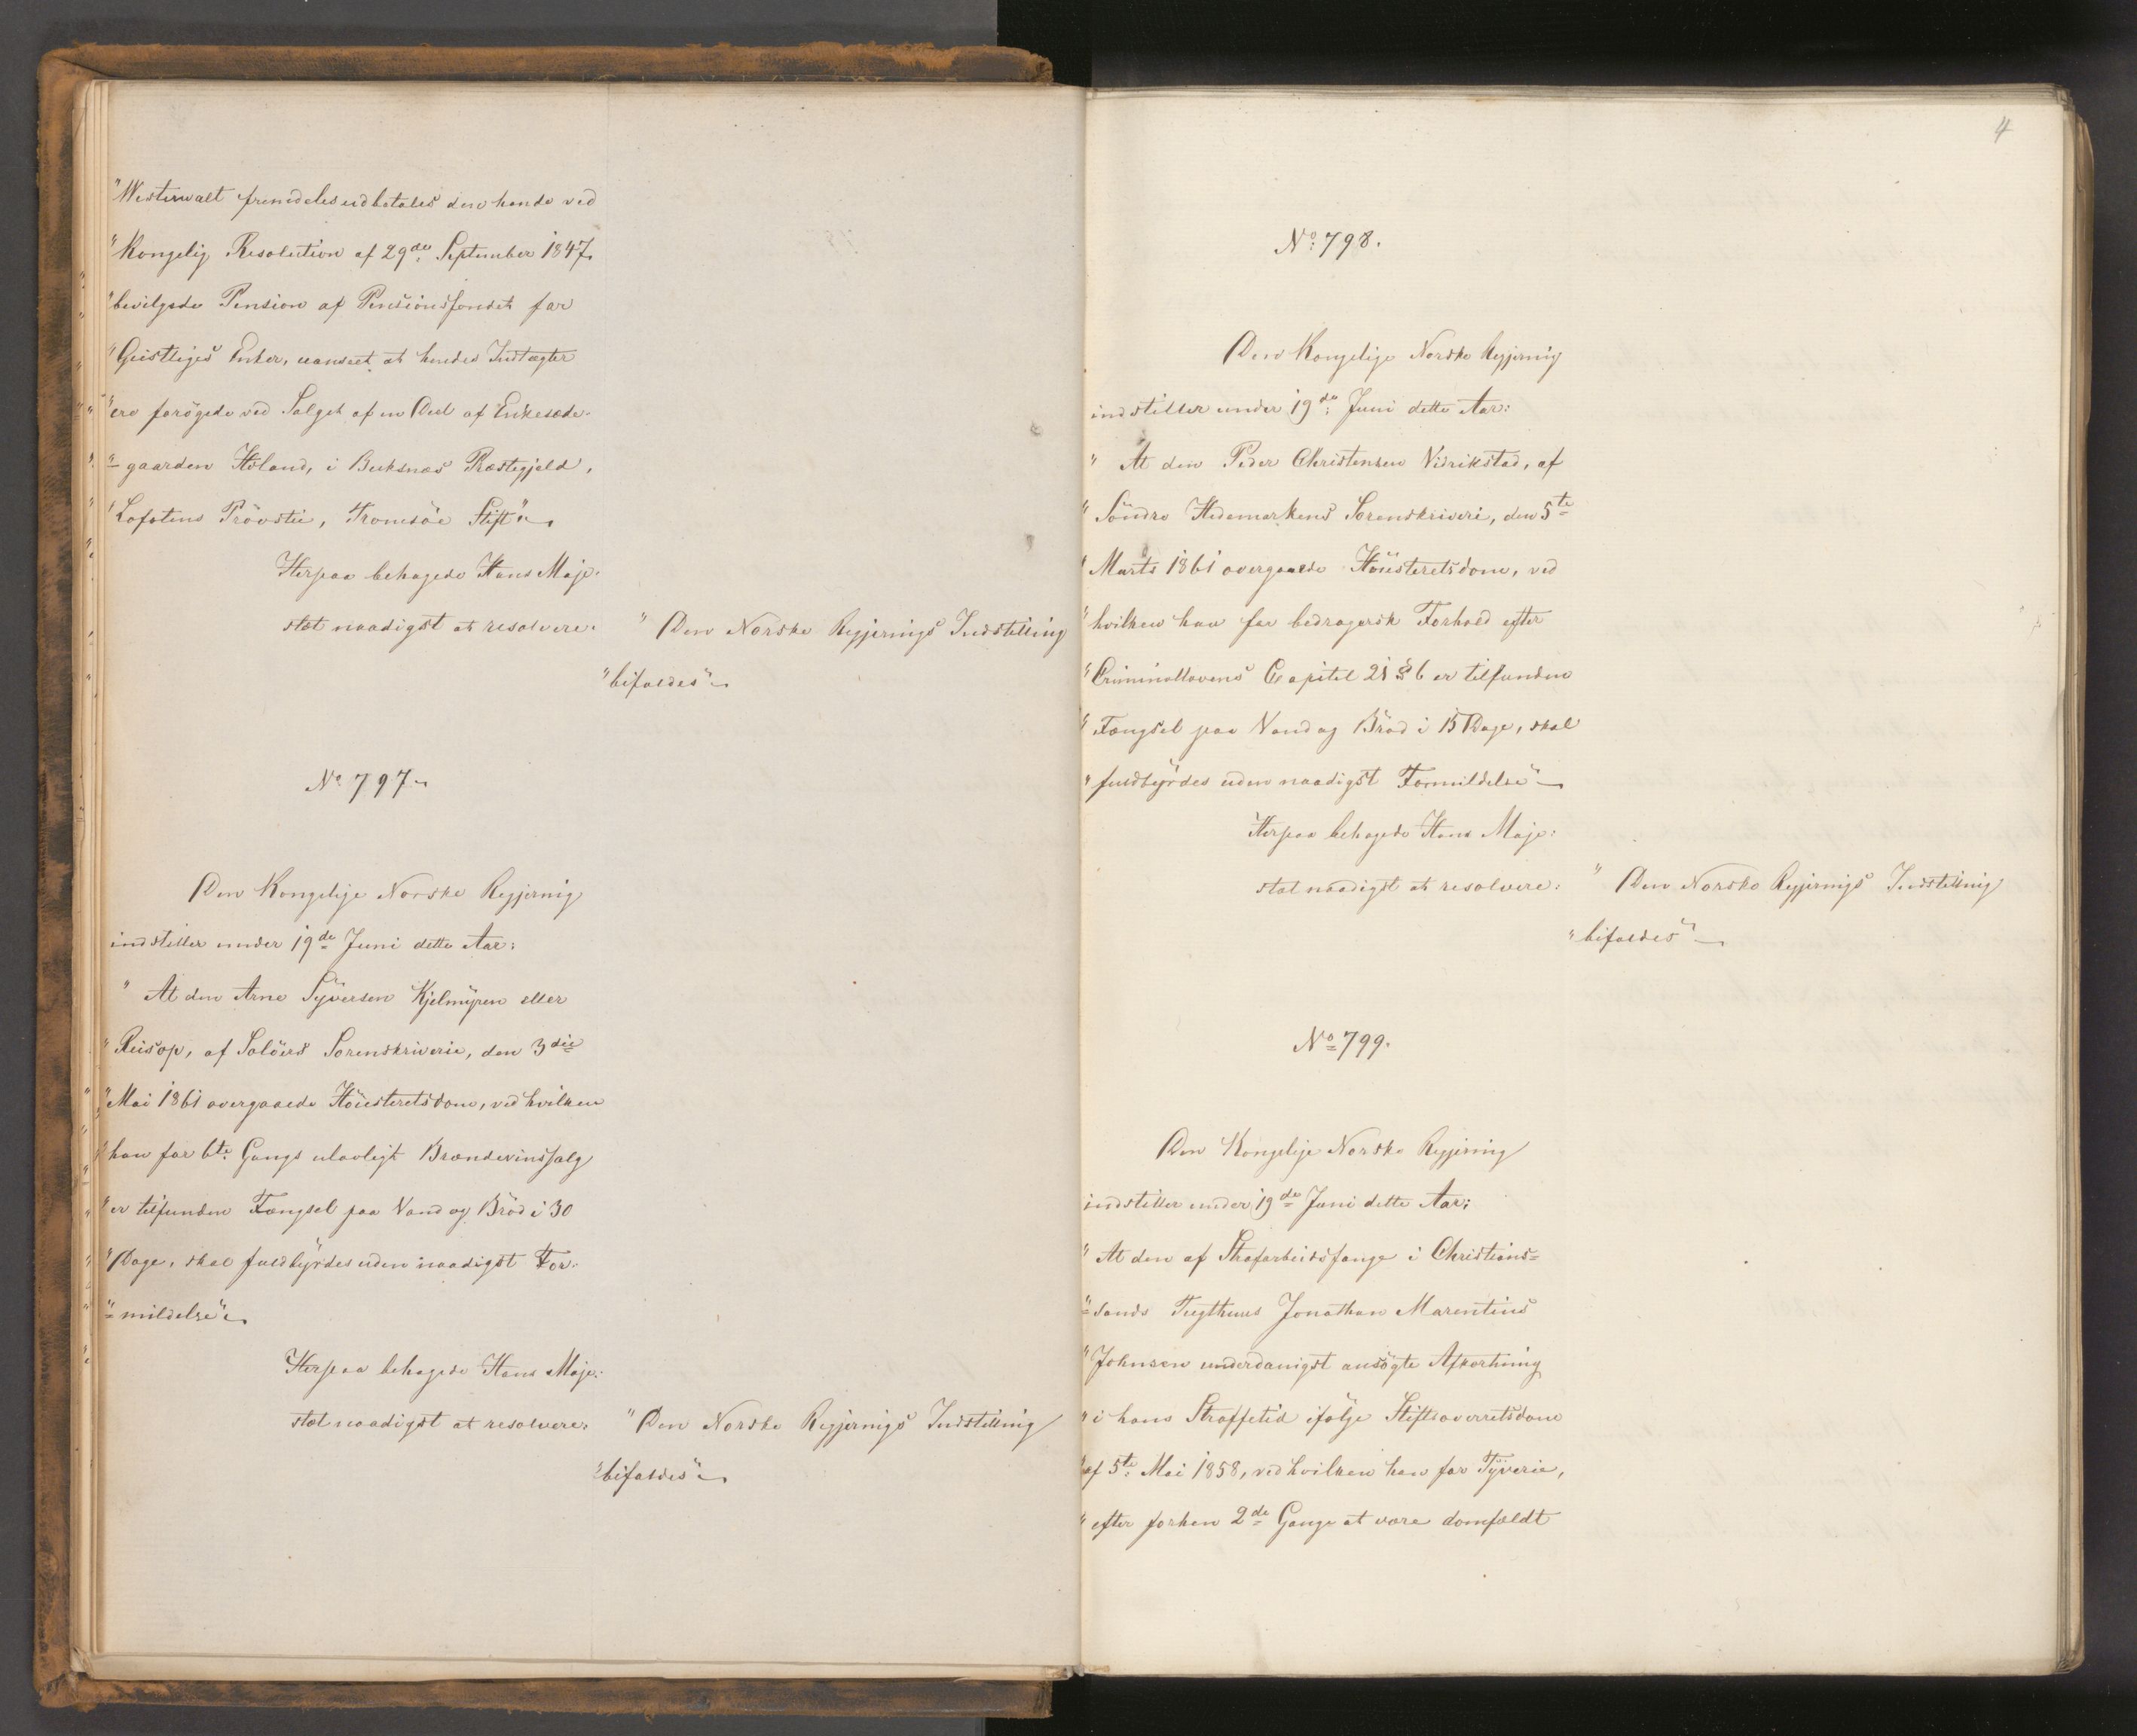 "Westerwalt fremdeles udbetales den hende ved
"Kongelig Resolution af 29de September 1847
"bevilgede Pension af Pensionsfondet for
"Geistliges Enker, uanseet at hendes Indtægter
"ere forögede ved Salget af en Deel af Enkesæde-
"=gaarden Holand, i Buksnæs Præstegjeld,
"Lofotens Provstie, Tromsöe Stift"
Herpaa behagede Hans Maje-
stæt naadigst at resolvere.
"Den Norske Regjerings Indstilling
"bifaldes"
No 797
Den Kongelige Norske Regjering
indstiller under 19de Juni dette Aar:
"At den Arne Syversen Kjelmyren eller
"Reisop, af Solöers Sorenskriverie, den 3die
"Mai 1861 overgaaede Höiesteretsdom, ved hvilken
"han for 6te Gangs ulovligt Brændeviinssalg
"er tilfunden Fængsel paa Vand og Bröd i 30
"Dage, skal fuldbyrdes uden naadigst For-
"=mildelse"
Herpaa behagede Hans Maje:
stæt naadigst at resolvere:
"Den Norske Regjerings Indstilling
"bifaldes"
4
No: 798.
Den Kongelige Norske Regjering
indstiller under 19de Juni dette Aar:
"At den Peder Christensen Vidrikstad, af
"Söndre Hedemarkens Sorenskriveri, den 5te
"Marts 1861 overgaaede Höiesteretsdom, ved
"hvilken han for bedragersk Forhold efter
"Criminallovens Capitel 21 § 6 er tilfunden
"Fængsel paa Vand og Bröd i 15 Dage, skal
"fuldbyrdes uden naadigst Formildelse"
Herpaa behagede Hans Maje:
stæt naadigst at resolvere:
"Den Norske Regjerings Indstilling
"bifaldes"
No 799.
Den Kongelige Norske Regjering
indstiller under 19de Juni dette Aar:
"At den af Strafarbeidsfange i Christians=
"=sands Tugthuus Jonathan Marentius
"Johnsen underdanigst ansögte Afkortning
"i hans Straffetid ifölge Stiftsoverretsdom
"af 5te Mai 1858, ved hvilken han for Tyverie,
"efter forhen 2de Gange at være domfældt